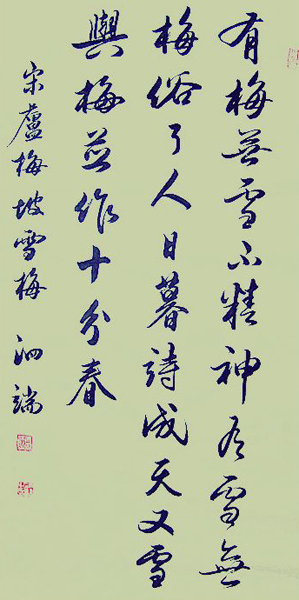 有梅無雪不精神有雪無
梅俗了人日暮詩成天又雪
與梅並作十分春
宋盧梅坡雪梅 泗端